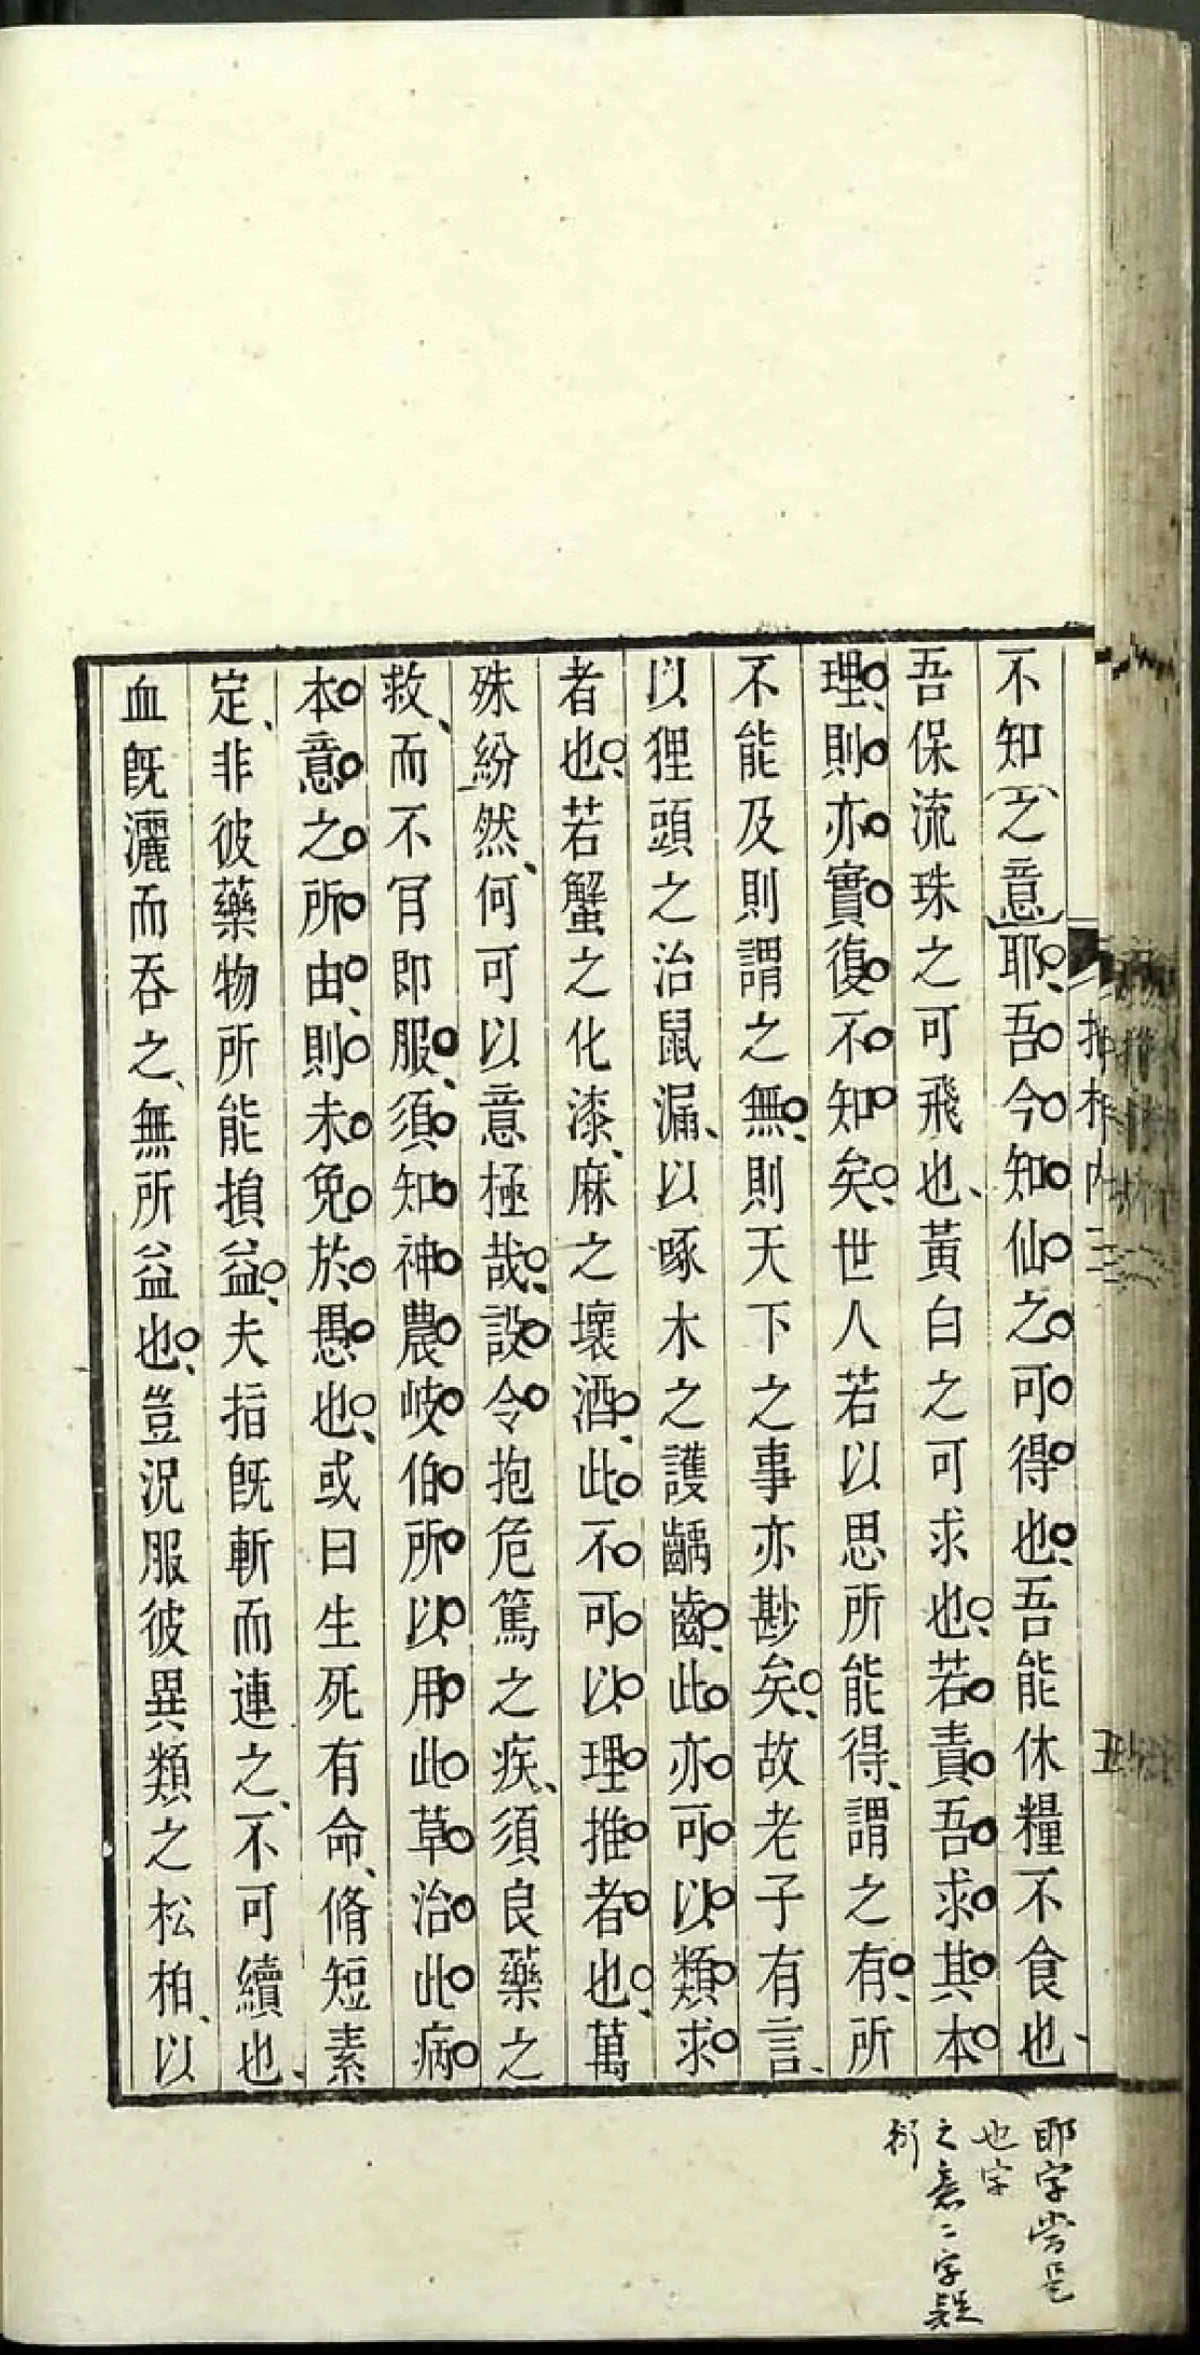 不知之意耶吾今知仙之可得也吾能休糧不食也
吾保流珠之可飛也黃白之可求也若責吾求其本
理則亦實復不知矣世人若以思所能得謂之有所
不能及則謂之無則天下之事亦尠矣故老子有言
以狸頭之治鼠漏以啄木之護齲齒此亦可以類求
者也若蟹之化漆麻之壞酒此不可以理推者也萬
殊紛然何可以意極哉設令抱危篤之疾須良藥之
救而不肎即服須知神農岐伯所以用此草治此病
本意之所由則未免於愚也或曰生死有命脩短素
定非彼藥物所能損益夫指旣斬而連之不可續也
血旣灑而吞之無所益也豈況服彼異類之松柏以
耶字當是
也字
之意二字疑
衍